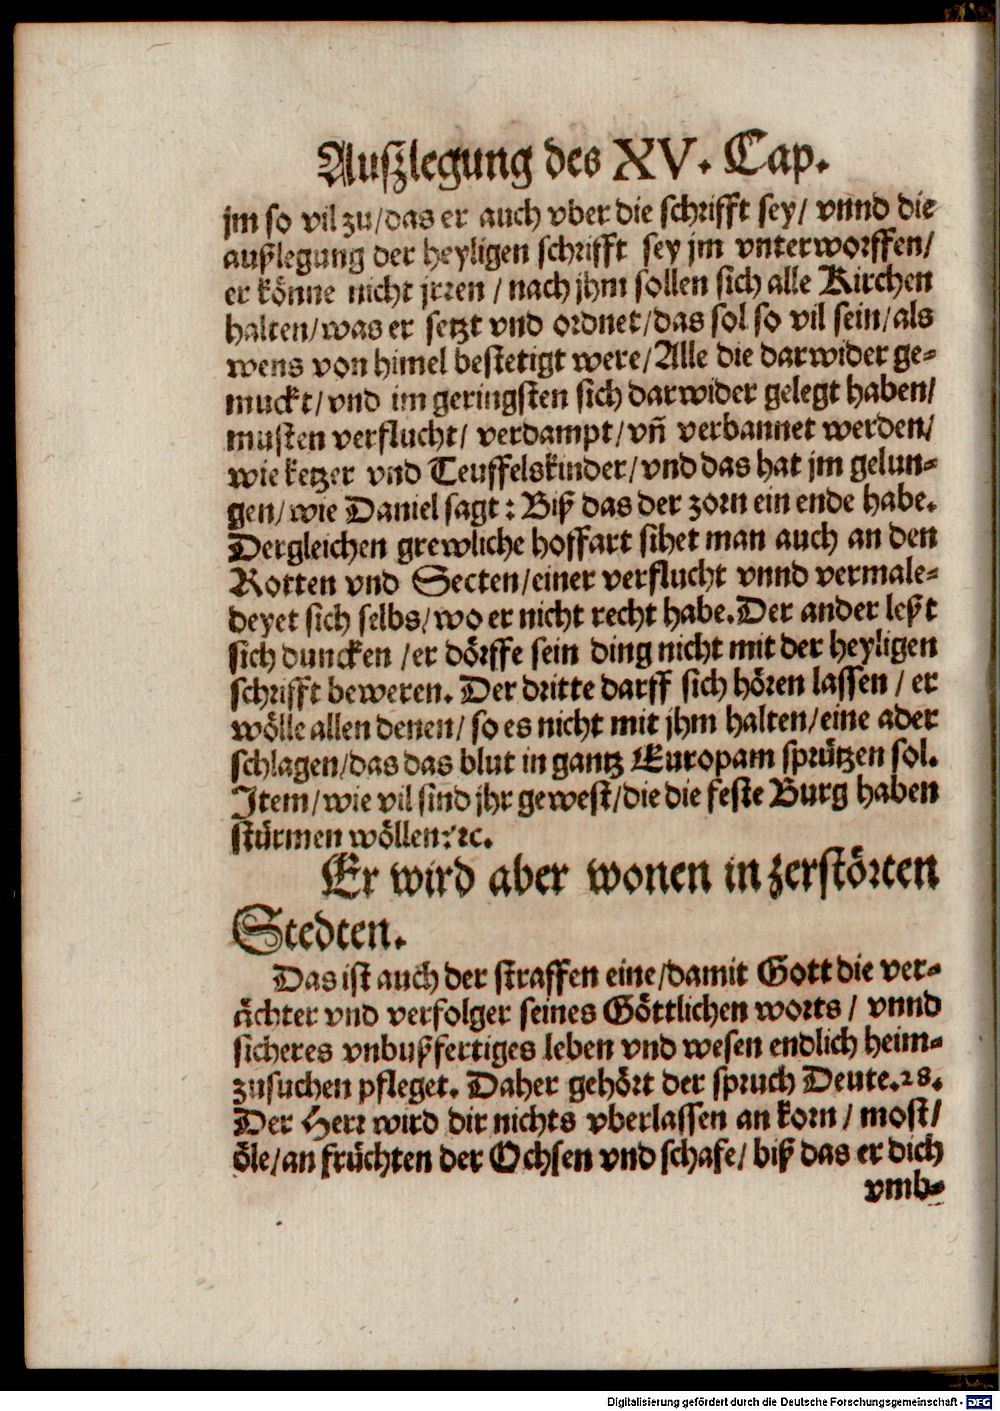 Auſzlegung des XV. Cap.
jm ſo vil zu/das er auch vber die ſchrifft ſey/ vnnd die
außlegung der heyligen ſchrifft ſey jm vnterworffen/
er könne nicht jrren / nach jhm ſollen ſich alle Kirchen
halten/was er ſetzt vnd ordnet/das ſol ſo vil ſein/als
wens von himel beſtetigt were/Alle die darwider ge-
muckt/vnd im geringſten ſich darwider gelegt haben/
muſten verflucht/ verdampt/vn̄ verbannet werden/
wie ketzer vnd Teuffelskinder/vnd das hat jm gelun-
gen/wie Daniel ſagt: Biß das der zorn ein ende habe.
Dergleichen grewliche hoffart ſihet man auch an den
Rotten vnd Secten/einer verflucht vnnd vermale-
deyet ſich ſelbs/wo er nicht recht habe. Der ander leßt
ſich duncken /er dörffe ſein ding nicht mit der heyligen
ſchrifft beweren. Der dritte darff ſich hören laſſen / er
wölle allen denen/ ſo es nicht mit jhm halten/eine ader
ſchlagen/das das blut in gantz Europam ſprützen ſol.
Item/wie vil ſind jhr geweſt/die die feſte Burg haben
ſtürmen wöllen/ꝛc.
Er wird aber wonen in zerſtörten
Stedten.
Das iſt auch der ſtraffen eine/damit Gott die ver-
ächter vnd verfolger ſeines Göttlichen worts / vnnd
ſicheres vnbußfertiges leben vnd weſen endlich heim-
zuſuchen pfleget. Daher gehört der ſpruch Deute.28.
Der Herr wird dir nichts vberlaſſen an korn / moſt/
öle/an früchten der Ochſen vnd ſchafe/ biß das er dich
vmb-
Digitalisierung gefördert durch die Deutsche Forschungsgemeinschaft - DFG